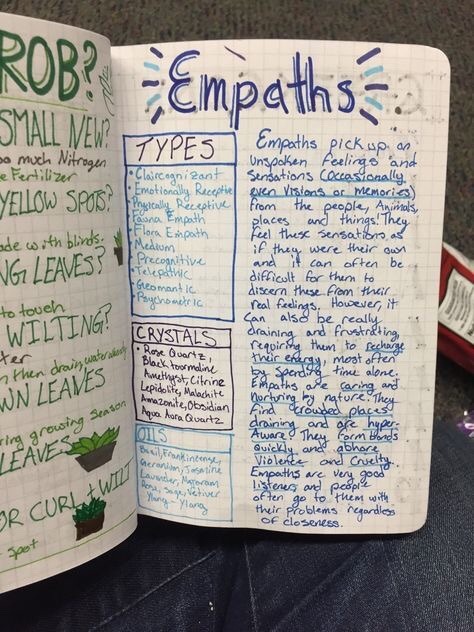 ROB?
SMALL NEW?
too much Nitrogen
Fertilizer
YELLOW SPOTS?
made with blinds.
NG LEAVES?
to touch
WILTING?
then drain, water
WN LEAVES
ring growing season
LEAVES
OR CURL + WILT
Spot
Empaths
TYPES
• Claircognizant
• Emotionally Receptive
Physically Receptive
Fauna Empath
• Flora Empath
• Medium
• Precognitive
• Telepathic
• Geomantic
• Psychometric
CRYSTALS
• Rose Quartz,
Black tourmaline
Amethyst, Citrine
Lepidolite, Malachite
Amazonite, Obsidian
Aqua Aura Quartz
OILS
Basil, Frankincense,
Geranium, Jasmine
Lavender, Marjoram
Rose, Sage, Vetiver
Ylang-Ylang
Empaths pick up on
unspoken feelings and
sensations (occasionally
even visions or memories)
from the people, Animals,
places and things! They
feel these sensations as
if they were their own
and it can often be
difficult for them to
discern these from their
real feelings. However, it
can also be really
draining and frustrating,
requiring them to recharge
their energy, most often
by spending time alone.
Empaths are caring and
nurturing by nature. They
find crowded places
draining and are hyper-
Aware! They form bonds
quickly and abhore
Violence and Cruelty.
Empaths are very good
listeners and people
often go to them with
their problems regardless
of closeness.